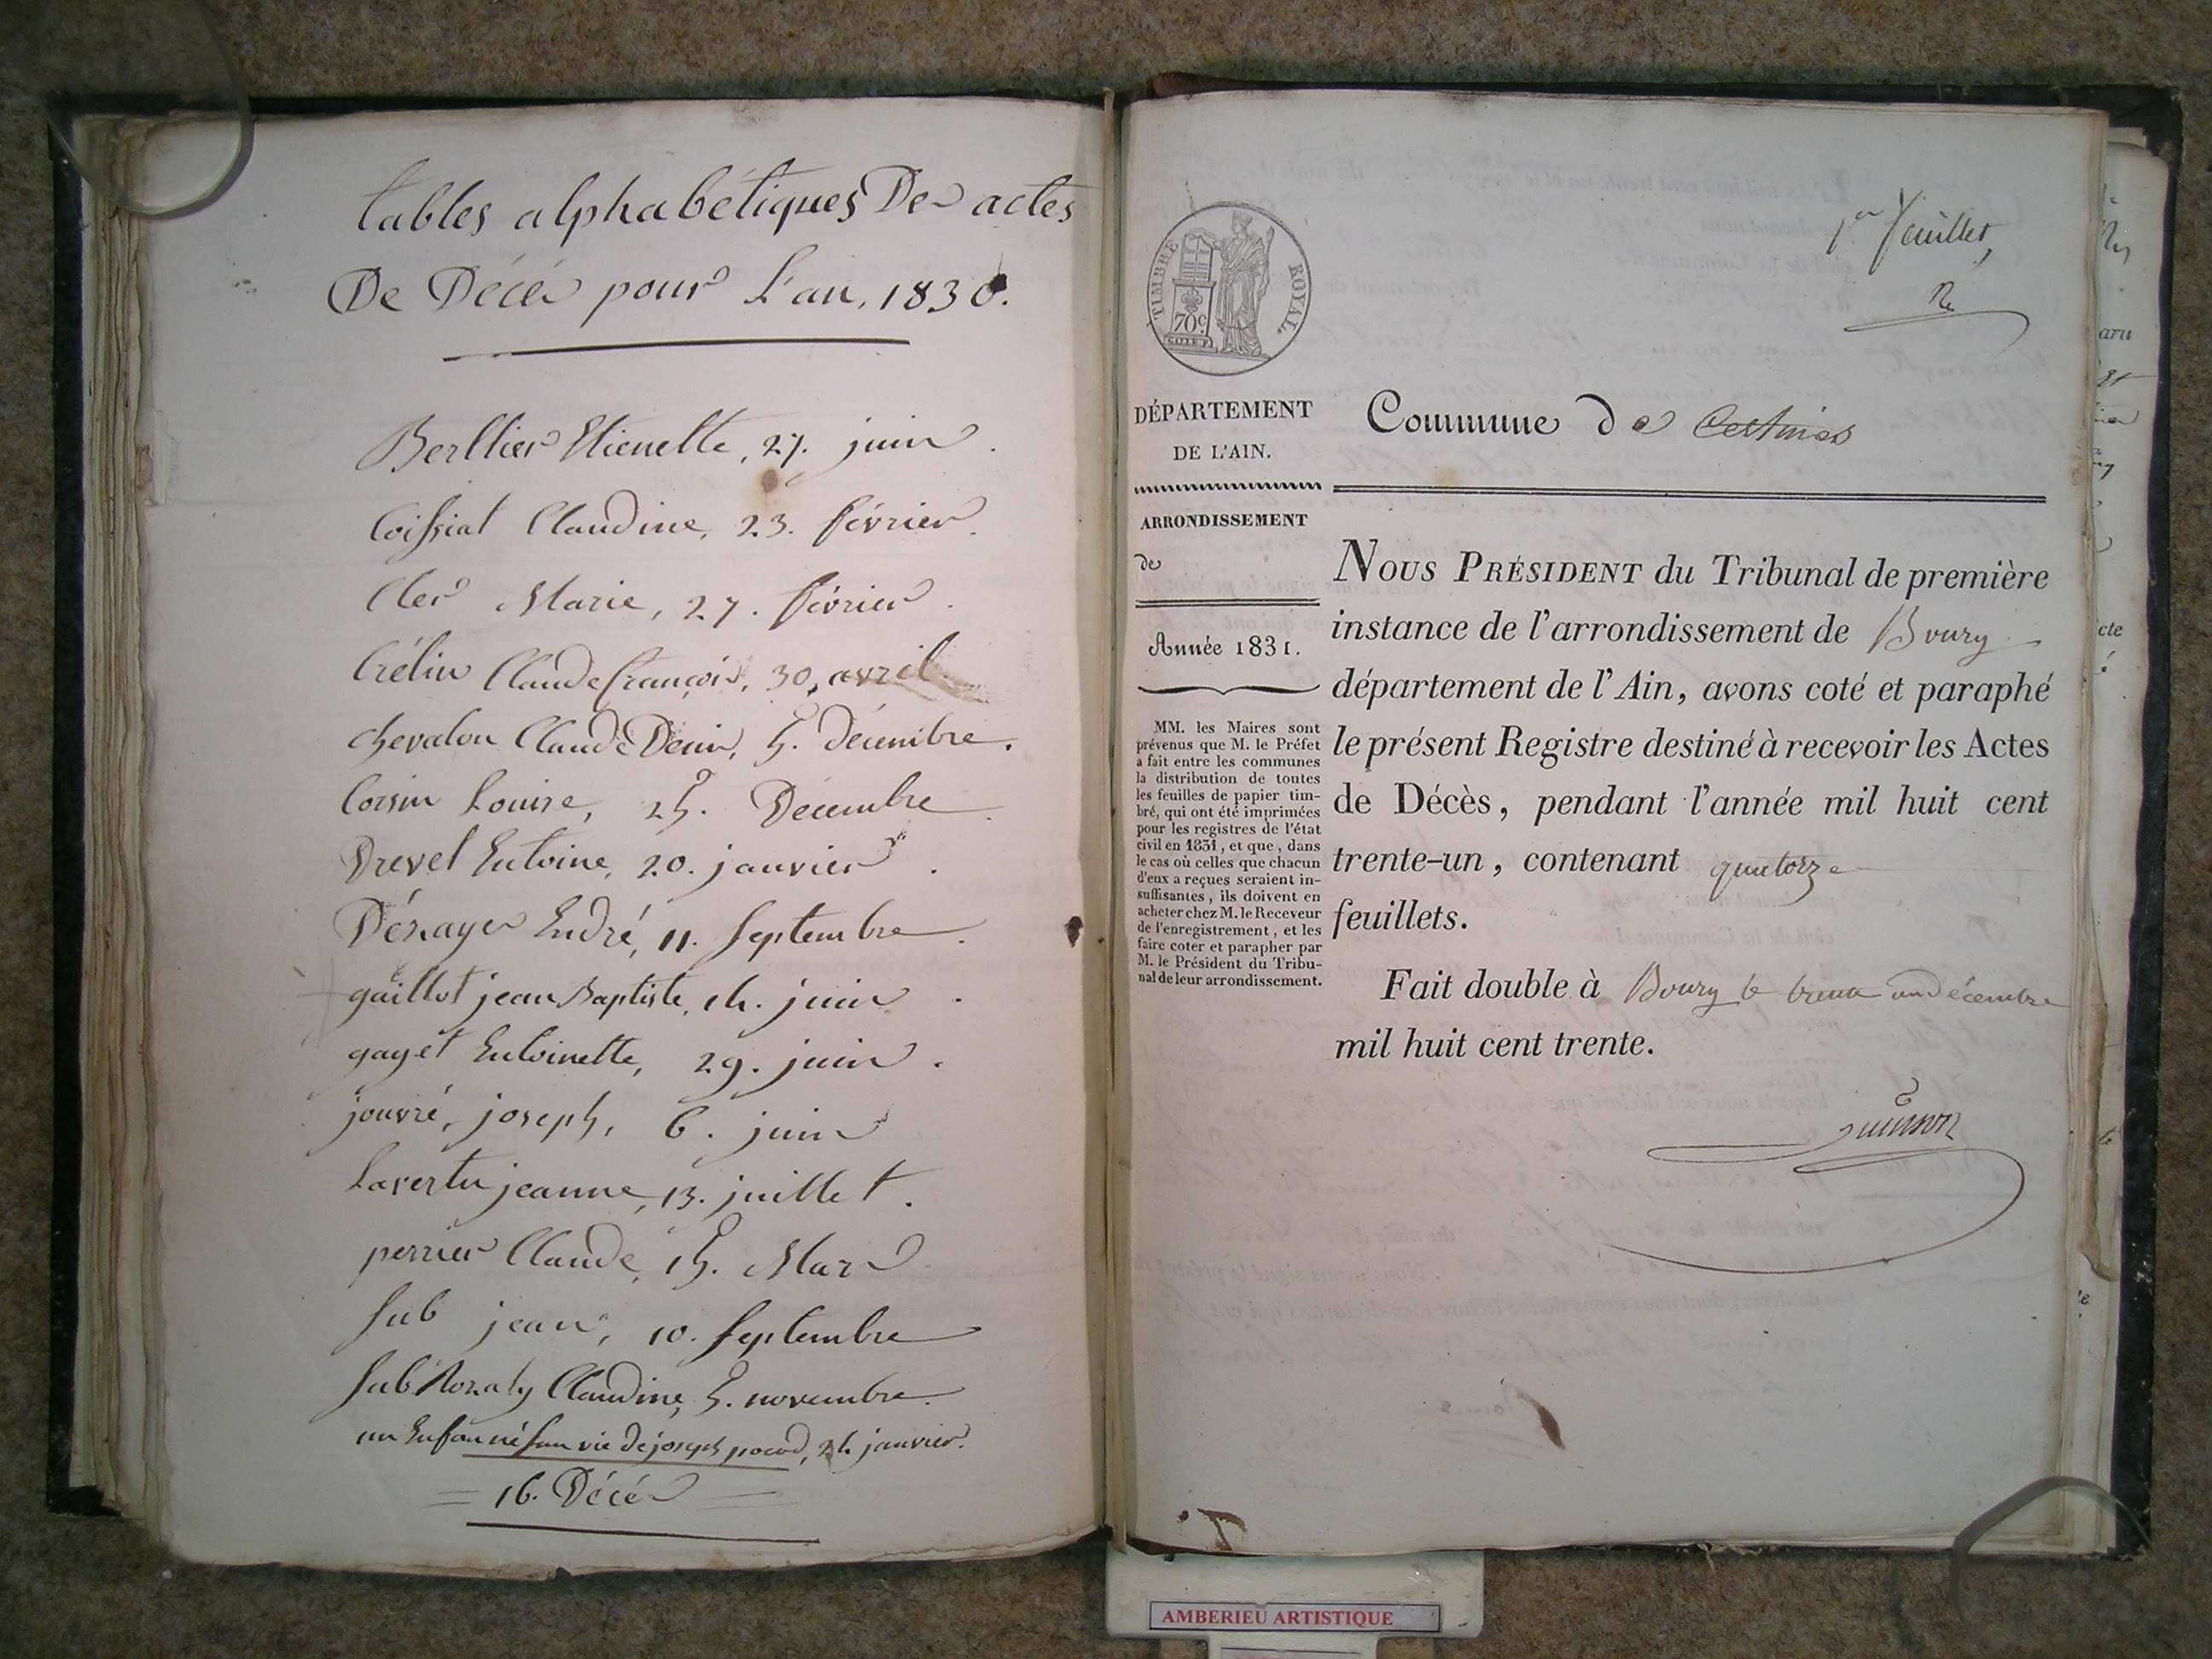 tables alphabétiques Des actes
De Décès pour L'an, 1830.
Berllier Etienette, 27. juin.
Coissiat Claudine, 23. février.
Cler Marie, 27. février.
Crélin Claude françois, 30, avril
chevalon Claude Denis, 5. décembre.
Corsin Louise, 25. Décembre.
Drevet Entoine, 20. janvier.
Désrayer Endré, 11. Septembre.
gaillot jean Baptiste, 14. juin.
gayet Entoinette, 29. juin.
jouvré, joseph, 6. juin
Lavertu jeanne, 13. juillet.
perrier Claude, 15. Mars
Sub jean, 10. Septembre
Sub Rozaly Claudine, 5. novembre.
un Enfan né san vie de joseph, 24 janvier.
= 16. Décès =
TIMBRE ROYAL.
70c.
1er feuillet,
DÉPARTEMENT
DE L'AIN.
Commune de Certines
ARRONDISSEMENT
de
Année 1831.
MM. les Maires sont
prévenus que M. le Préfet
a fait entre les communes
la distribution de toutes
les feuilles de papier tim-
bré, qui ont été imprimées
pour les registres de l'état
civil en 1831, et que, dans
le cas où celles que chacun
d'eux a reçues seraient in-
suffisantes, ils doivent en
acheter chez M. le Receveur
de l'enregistrement, et les
faire coter et parapher par
M. le Président du Tribu-
nal de leur arrondissement.
NOUS PRÉSIDENT du Tribunal de première
instance de l'arrondissement de Bourg
département de l'Ain, avons coté et paraphé
le présent Registre destiné à recevoir les Actes
de Décès, pendant l'année mil huit cent
trente-un, contenant quatorze
feuillets.
Fait double à Bourg le trente un décembre
mil huit cent trente.
AMBERIEU ARTISTIQUE